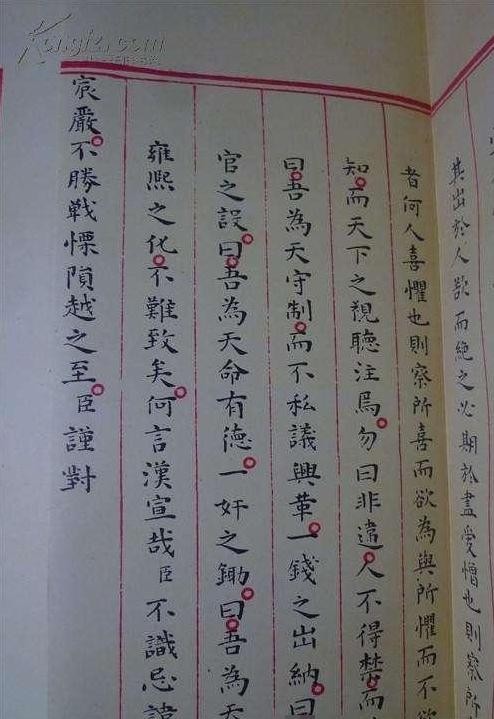 其出於人欲而絶之必期於盡愛憎也則察所
者何人喜懼也則察所喜而欲為與所懼而不欲
知而天下之視聽注焉勿曰非違人不得禁而
曰吾為天守制而不私議興革一錢之出納曰
官之設曰吾為天命有德一奸之鋤曰吾為天
雍熙之化不難致矣何言漢宣哉臣不識忌諱
宸嚴不勝戰慄隕越之至臣謹對